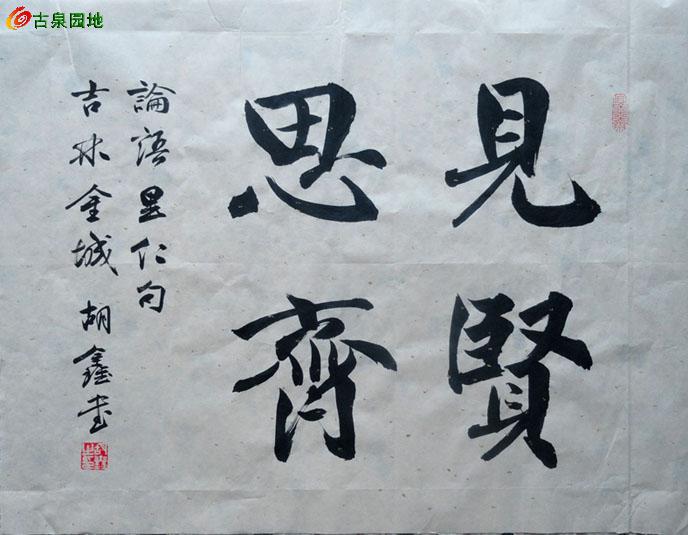 古泉园地
見賢
思齊
論語里仁句
吉林金城 胡鑫書